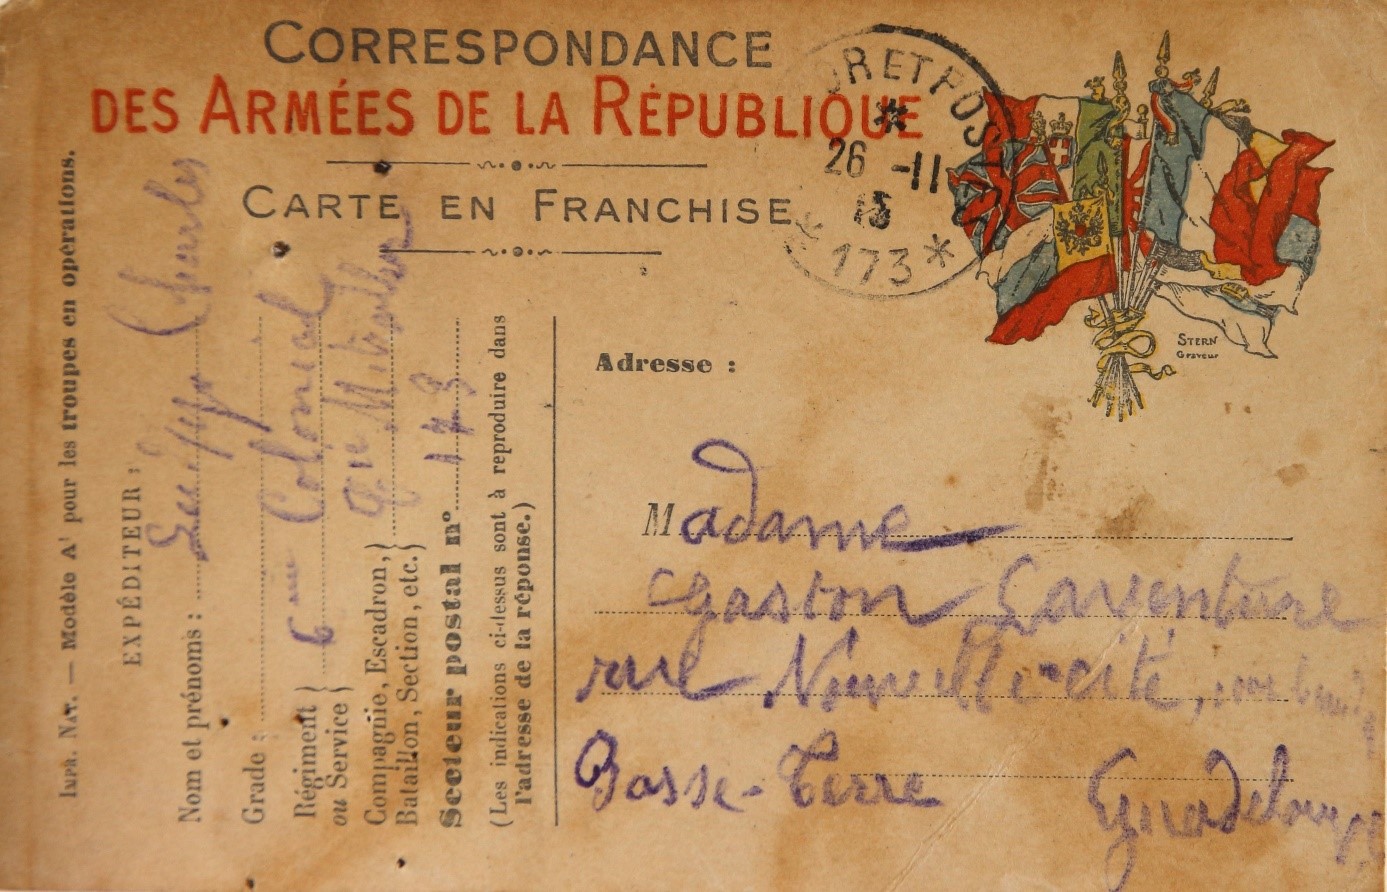 CORRESPONDANCE
DES ARMÉES DE LA RÉPUBLIQUE
CARTE EN FRANCHISE
OR ET POS
26 -11
15
* 173 *
STERN
Graveur
IMPR. NAT. — Modèle A¹ pour les troupes en opérations.
EXPÉDITEUR :
Nom et prénoms : Charles
Grade :
Régiment ou Service } 6 Colonial
Compagnie, Escadron, Bataillon, Section, etc. }
Secteur postal n° 173
(Les indications ci-dessus sont à reproduire dans
l'adresse de la réponse.)
Adresse :
Madame
Gaston
rue Nouvelle-cité,
Basse-Terre
Guadeloupe